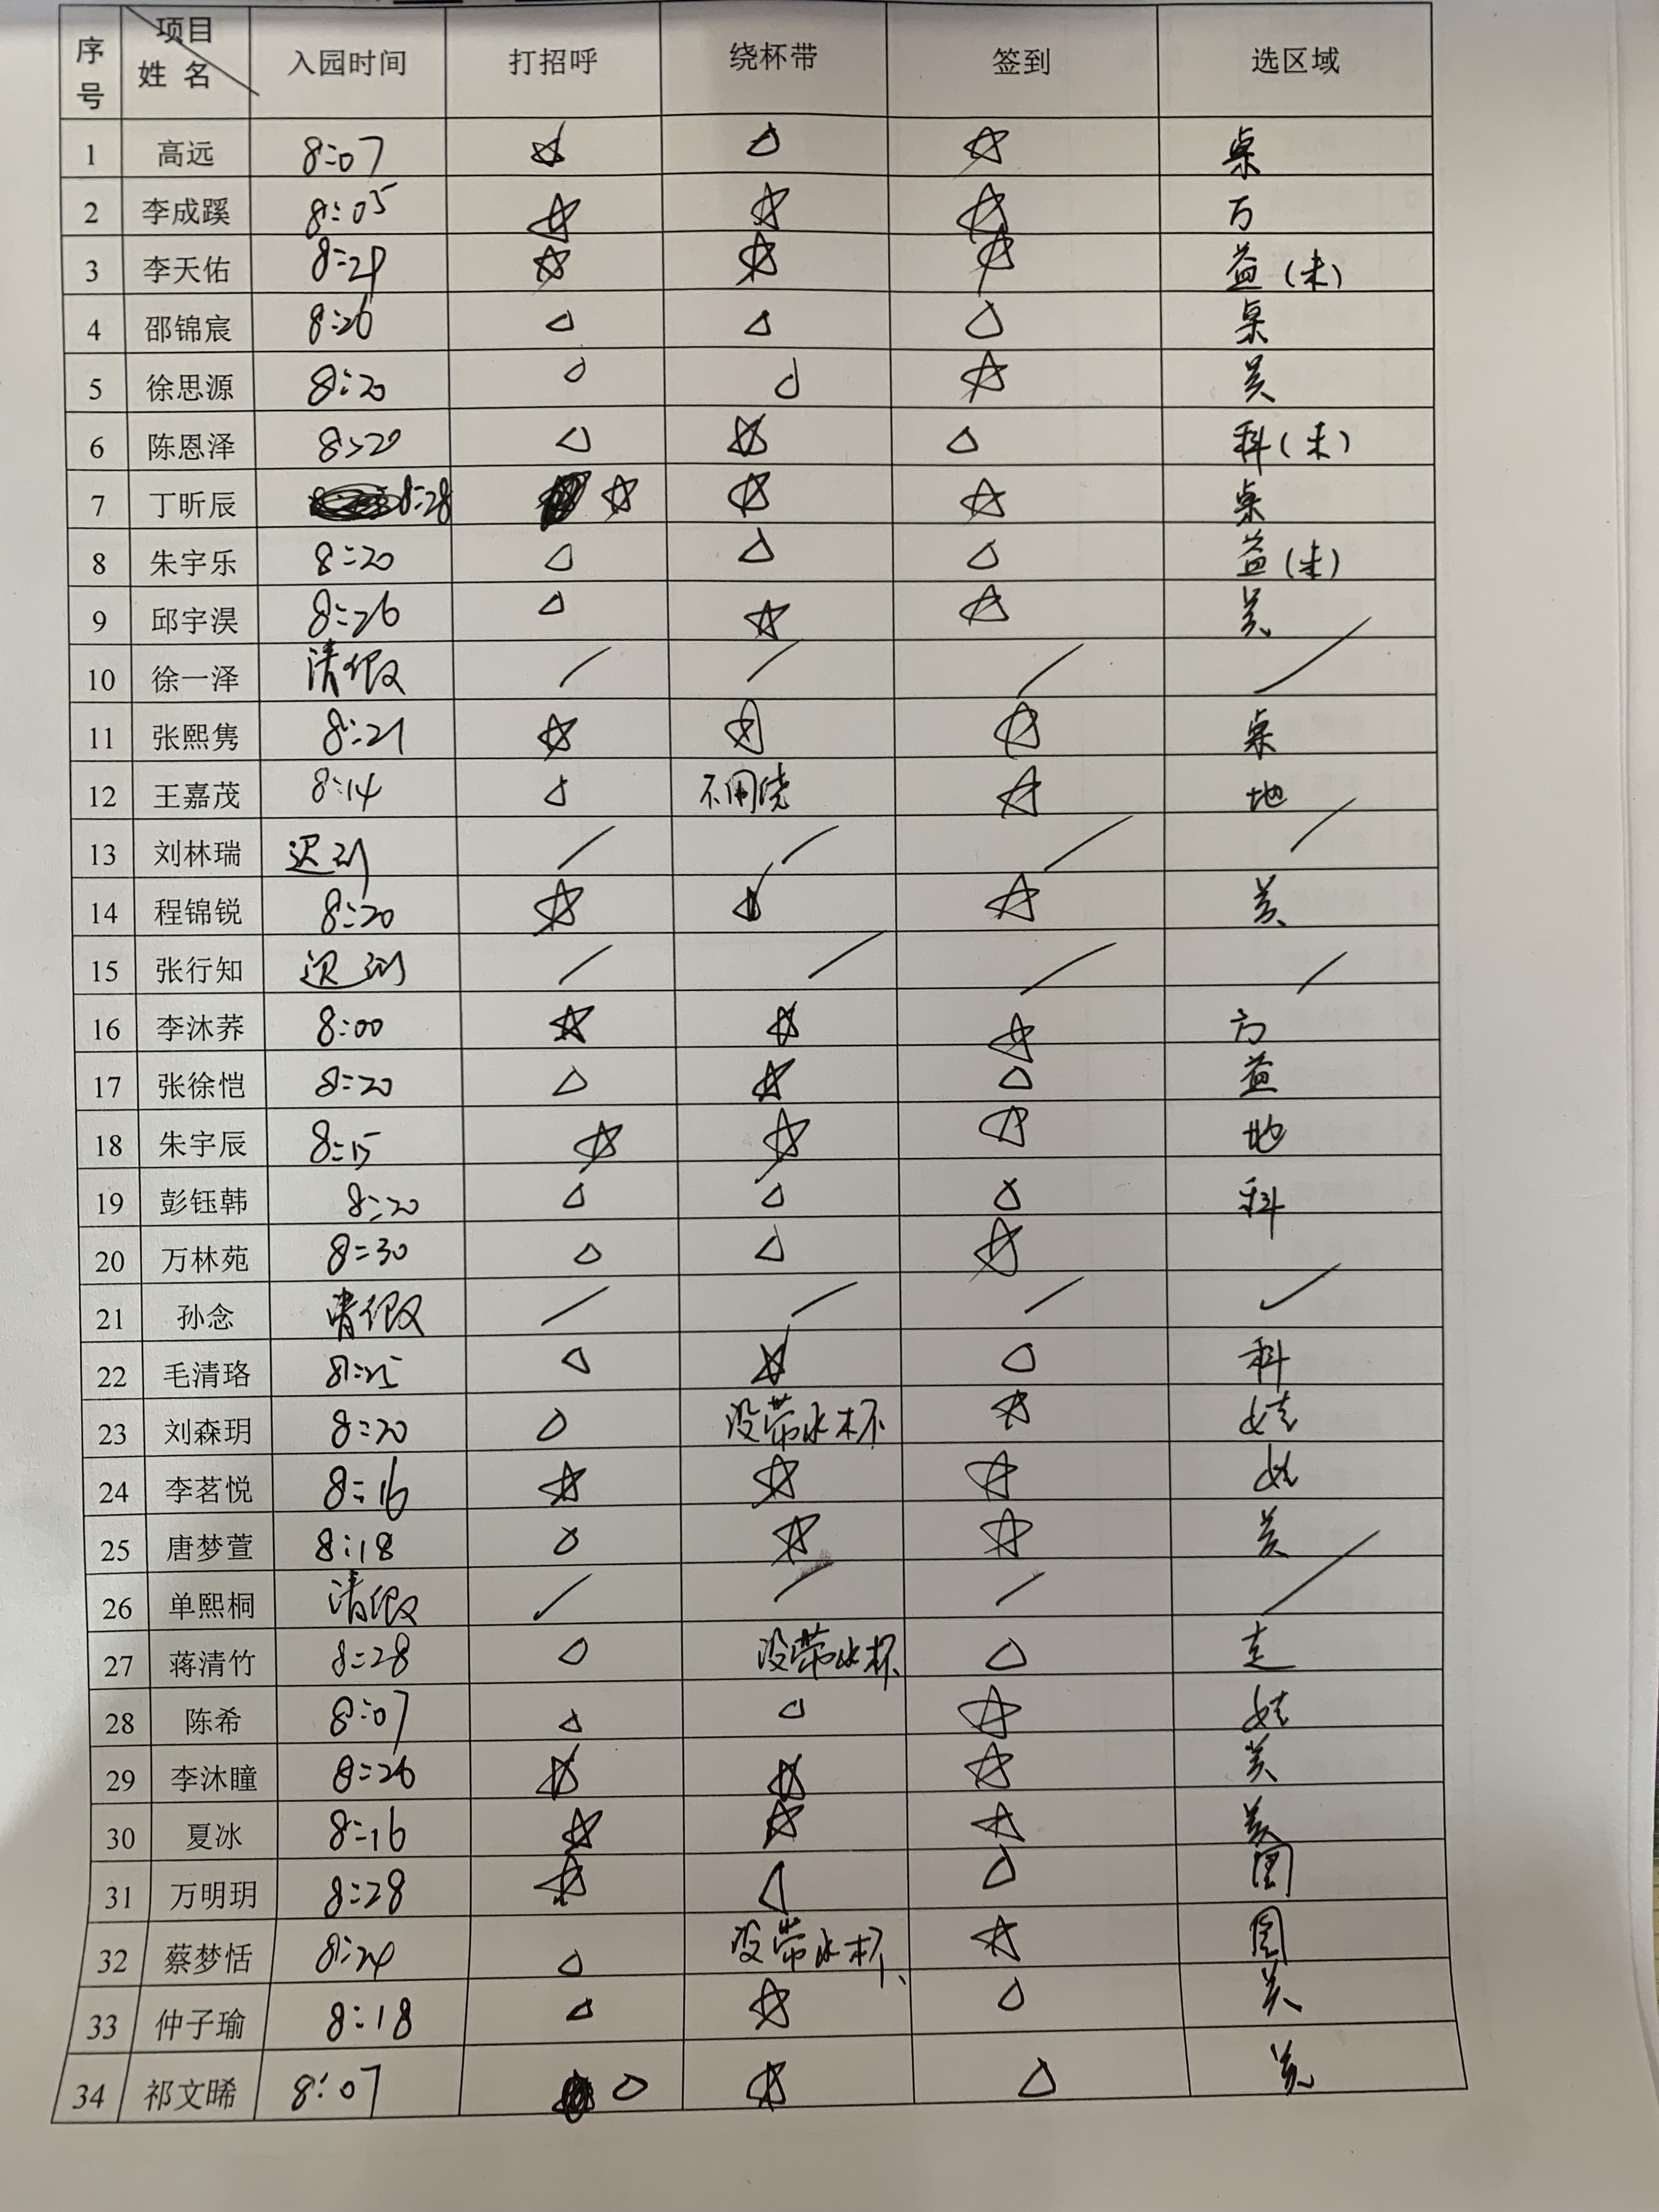 序号 项目 姓名 入园时间 打招呼 绕杯带 签到 选区域
1 高远 8:07 ☆ △ ☆ 桌
2 李成蹊 8:05 ☆ ☆ ☆ 万
3 李天佑 ☆ ☆ ☆ 益(未)
4 邵锦宸 8:26 △ △ △ 桌
5 徐思源 8:20 △ △ ☆ 美
6 陈恩泽 8:20 △ ☆ △ 科(未)
7 丁昕辰 8:28 ☆ ☆ ☆ 桌
8 朱宇乐 8:20 △ △ △ 益(未)
9 邱宇淏 8:26 △ ☆ ☆ 美
10 徐一泽 请假 / / / /
11 张熙隽 8:21 ☆ ☆ ☆ 桌
12 王嘉茂 8:14 △ 不用绕 ☆ 地
13 刘林瑞 迟到 / / / /
14 程锦锐 8:20 ☆ ☆ 美
15 张行知 迟到 / / / /
16 李沐荞 8:00 ☆ ☆ ☆
17 张徐恺 8:20 △ ☆ △ 益
18 朱宇辰 8:15 ☆ ☆ ☆ 地
19 彭钰韩 8:20 △ △ △ 科
20 万林苑 8:30 △ △ ☆
21 孙念 请假 / / / /
22 毛清珞 8:25 △ ☆ △ 科
23 刘森玥 8:20 △ 没带水杯 ☆ 娃
24 李茗悦 8:16 ☆ ☆ ☆ 娃
25 唐梦萱 8:18 △ ☆ ☆ 美
26 单熙桐 请假 / / / /
27 蒋清竹 8:28 △ 没带水杯 △
28 陈希 8:07 △ △ ☆ 娃
29 李沐瞳 8:26 ☆ ☆ ☆ 美
30 夏冰 8:16 ☆ ☆ ☆ 美
31 万明玥 8:28 ☆ △ △ 图
32 蔡梦恬 8:24 △ 没带水杯 ☆ 图
33 仲子瑜 8:18 △ ☆ △ 美
34 祁文晞 8:07 △ ☆ △ 美